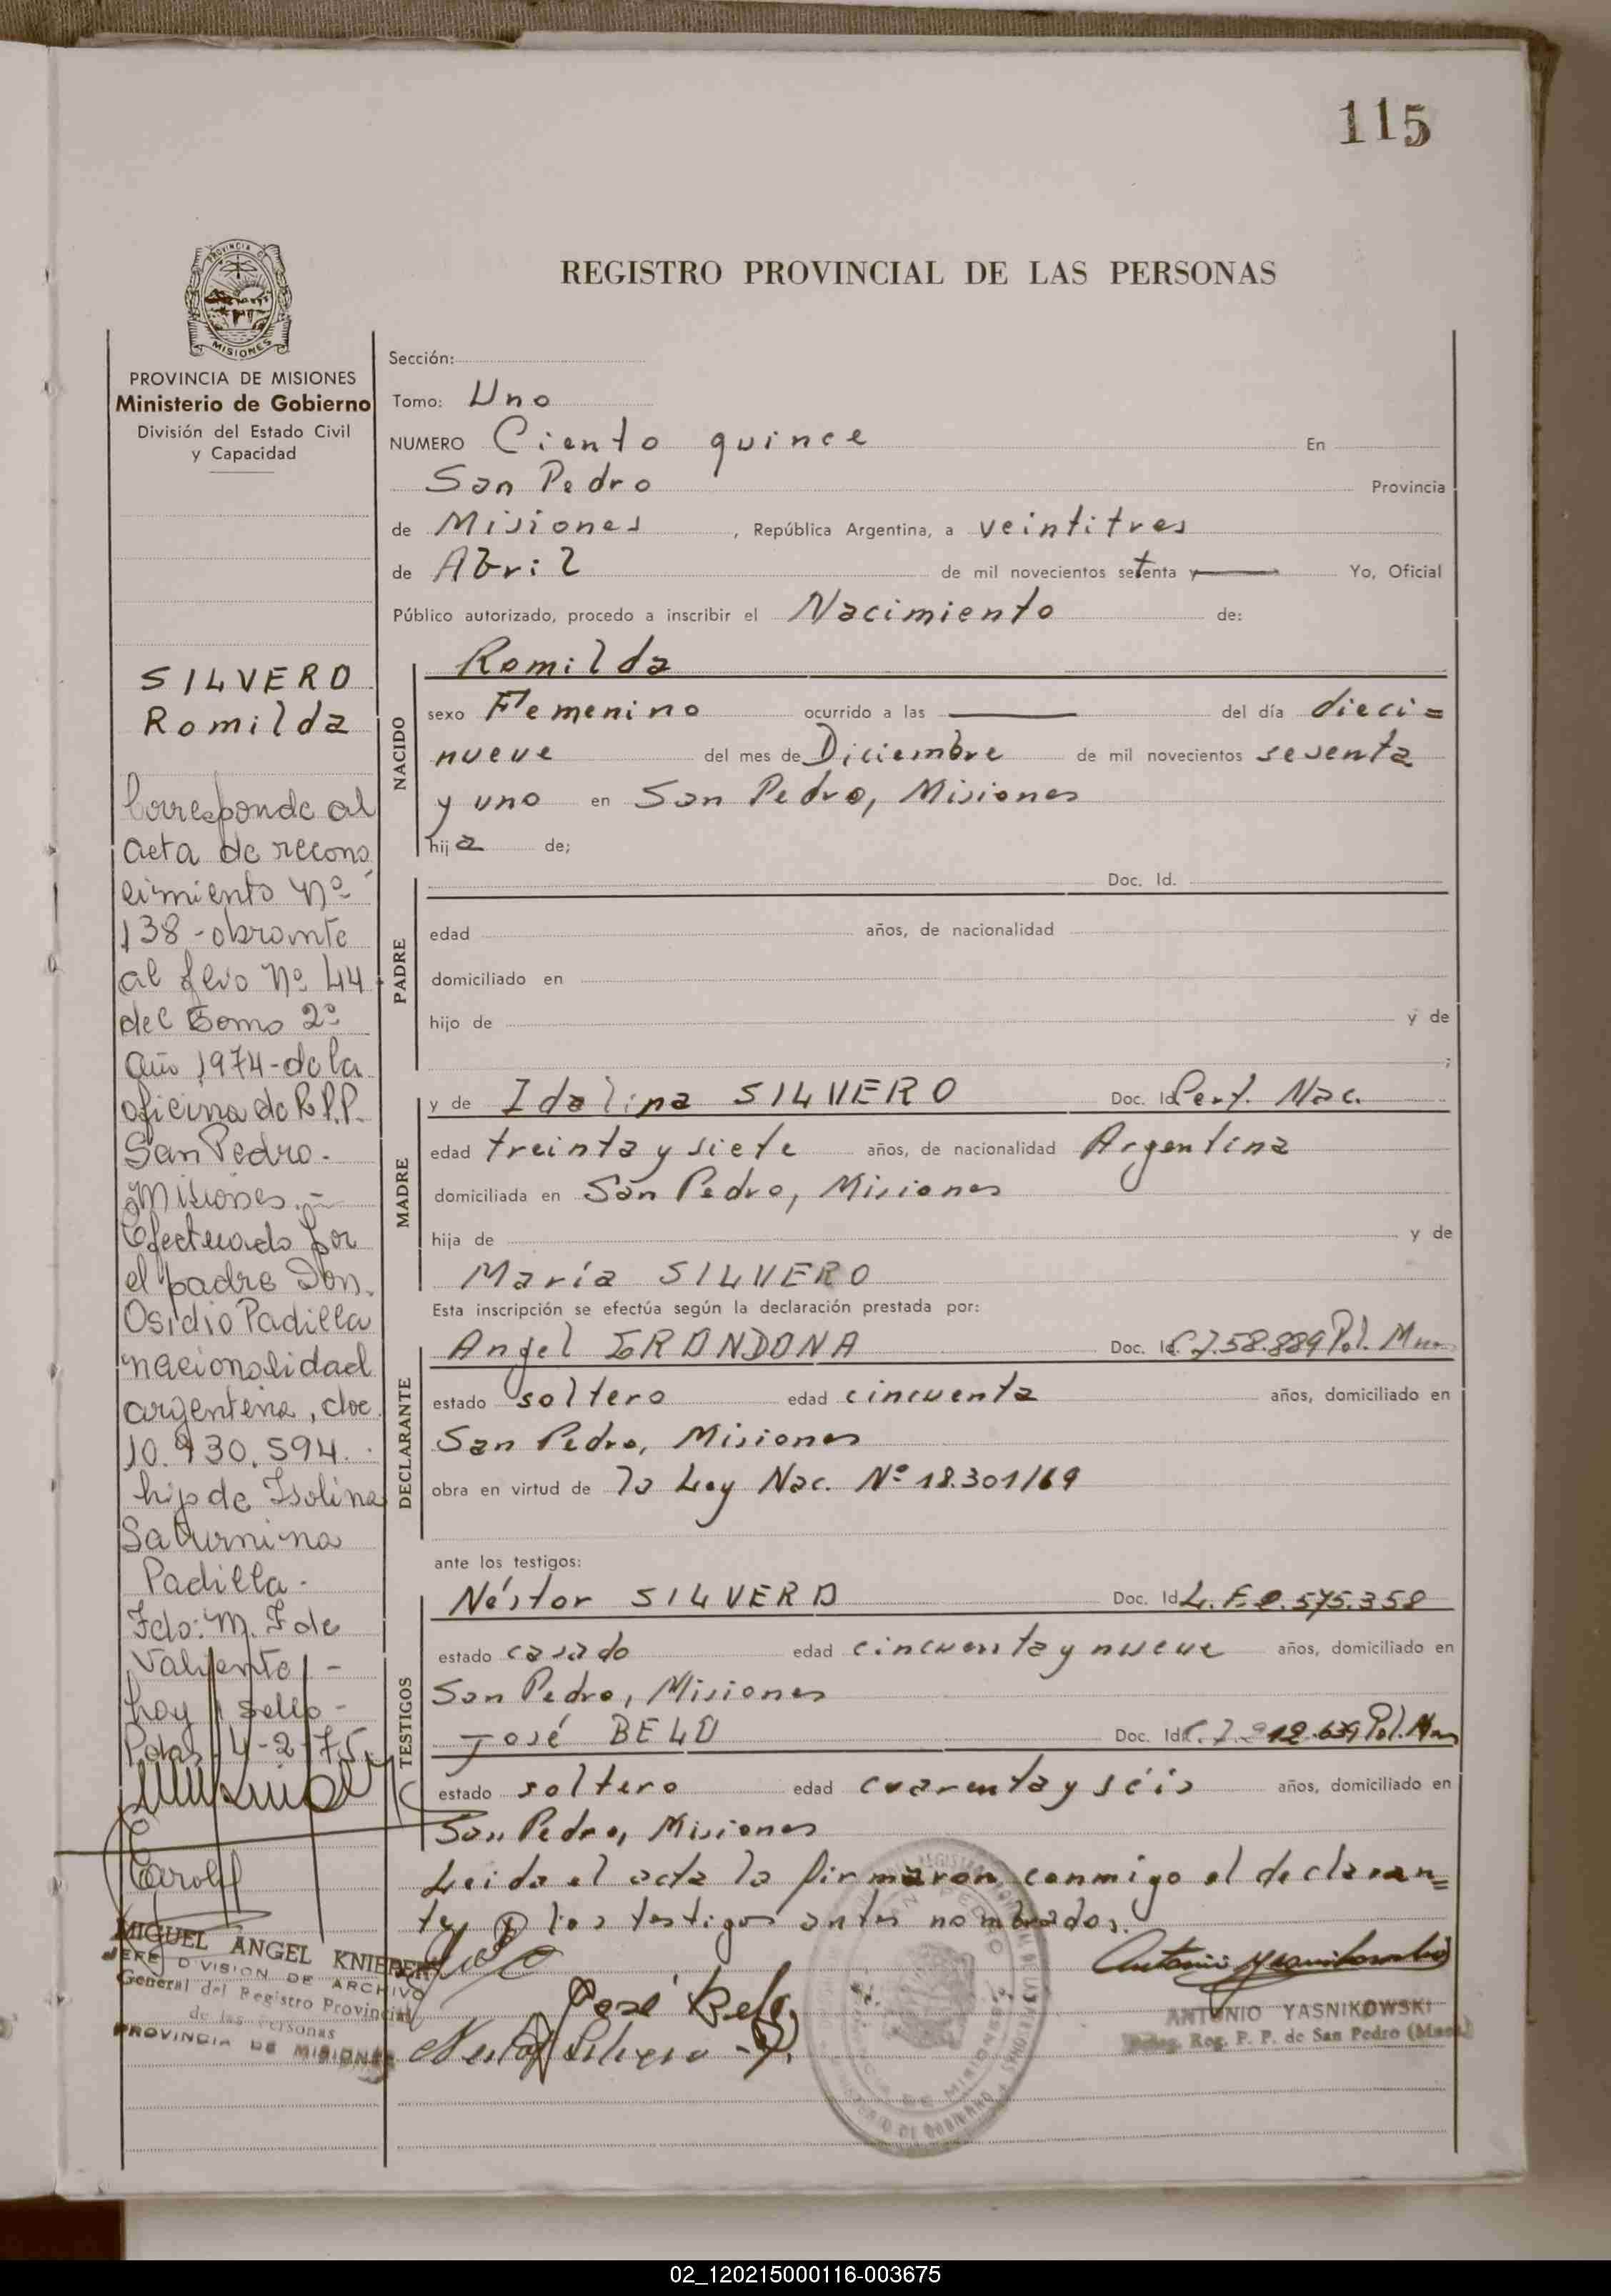 115
REGISTRO PROVINCIAL DE LAS PERSONAS
PROVINCIA
MISIONES
PROVINCIA DE MISIONES
Ministerio de Gobierno
División del Estado Civil
y Capacidad
SILVERO
Romilda
Corresponde al
acta de recono
cimiento Nº
138 - obrante
al folio Nº 44
del Tomo 2º
Año 1974 - de la
oficina de R.P.P.
San Pedro.-
Misiones.-
Efectuado por
el padre Don.
Osidio Padilla
nacionalidad
argentina, doc.
10.930.594.
hijo de Isolina
Saturnina
Padilla.-
Fdo: M. F de
Valiente
hoy sello -
Pdas. 4-2-75
MIGUEL ANGEL KNIEPER
JEFE DIVISION DE ARCHIVO
General del Registro Provincial
de las Personas
PROVINCIA DE MISIONES
Sección:
Tomo: Uno
NUMERO Ciento quince En
San Pedro Provincia
de Misiones, República Argentina, a veintitres
de Abril de mil novecientos setenta y — Yo, Oficial
Público autorizado, procedo a inscribir el Nacimiento de:
NACIDO
Romilda
sexo Femenino ocurrido a las — del día dieci=
nueve del mes de Diciembre de mil novecientos sesenta
y uno en San Pedro, Misiones
hija de;
PADRE
Doc. Id.
edad años, de nacionalidad
domiciliado en
hijo de y de
;
MADRE
y de Idalina SILVERO Doc. Id Cert. Nac.
edad treinta y siete años, de nacionalidad Argentina
domiciliada en San Pedro, Misiones
hija de y de
María SILVERO
Esta inscripción se efectúa según la declaración prestada por:
DECLARANTE
Angel GRONDONA Doc. Id C.I.58.889 Pol. Mnes
estado soltero edad cincuenta años, domiciliado en
San Pedro, Misiones
obra en virtud de la Ley Nac. Nº 18.301/69
ante los testigos:
TESTIGOS
Néstor SILVERO Doc. Id L.E. 575.358
estado casado edad cincuenta y nueve años, domiciliado en
San Pedro, Misiones
José BELO Doc. Id C.I. 639 Pol. Mnes
estado soltero edad cuarenta y séis años, domiciliado en
San Pedro, Misiones
Leida el acta la firmaron conmigo el declaran=
te, y los testigos antes nombrados.
José Belo
Nestor Silvero
ANTONIO YASNIKOWSKI
Reg. P. P. de San Pedro (Mnes.)
02_120215000116-003675